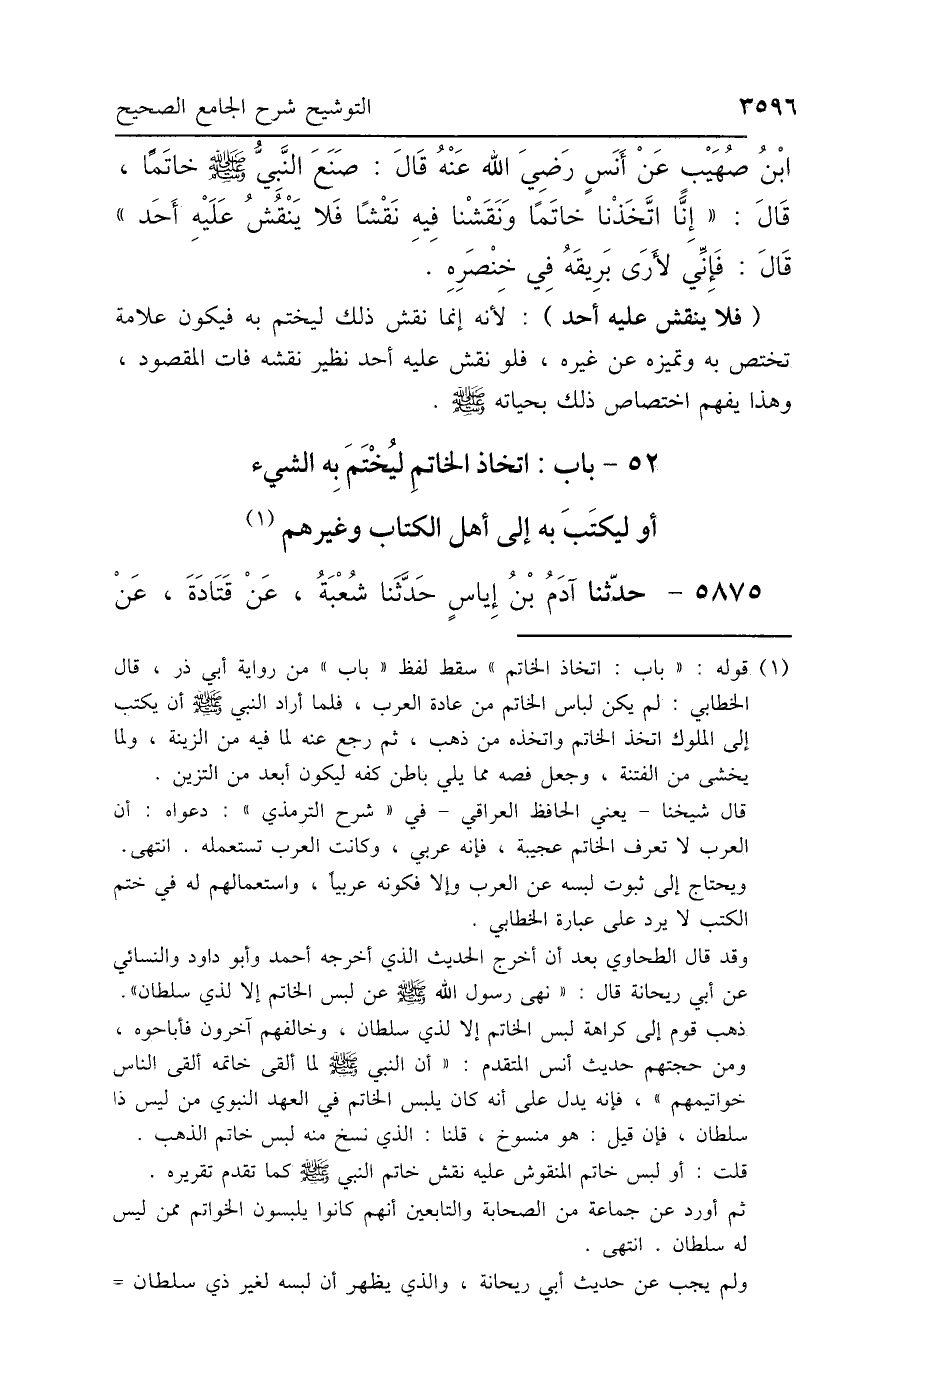 ٣٥٩٦ التوشيح شرح الجامع الصحيح
ابْنُ صُهَيْبٍ عَنْ أَنَسٍ رَضِيَ الله عَنْهُ قَالَ : صَنَعَ النَّبِيُّ ﷺ خاتَمًا ،
قَالَ : « إِنَّا اتَّخَذْنا خاتَمًا وَنَقَشْنا فِيهِ نَقْشًا فَلا يَنْقُشُ عَلَيْهِ أَحَد »
قَالَ : فَإِنِّي لأَرَى بَرِيقَهُ فِي خِنْصَرِهِ .
( فلا ينقش عليه أحد ) : لأنه إنما نقش ذلك ليختم به فيكون علامة
تختص به وتميزه عن غيره ، فلو نقش عليه أحد نظير نقشه فات المقصود ،
وهذا يفهم اختصاص ذلك بحياته ﷺ .
٥٢ – باب : اتخاذ الخاتمِ ليُخْتَمَ بِه الشيء
أو ليكتَبَ به إلى أهل الكتاب وغيرهم (١)
٥٨٧٥ – حدّثنا آدَمُ بْنُ إِياسٍ حَدَّثَنا شُعْبَةُ ، عَنْ قَتَادَةَ ، عَنْ
(١) قوله : « باب : اتخاذ الخاتم » سقط لفظ « باب » من رواية أبي ذر ، قال
الخطابي : لم يكن لباس الخاتم من عادة العرب ، فلما أراد النبي ﷺ أن يكتب
إلى الملوك اتخذ الخاتم واتخذه من ذهب ، ثم رجع عنه لما فيه من الزينة ، ولما
يخشى من الفتنة ، وجعل فصه مما يلي باطن كفه ليكون أبعد من التزين .
قال شيخنا – يعني الحافظ العراقي – في « شرح الترمذي » : دعواه : أن
العرب لا تعرف الخاتم عجيبة ، فإنه عربي ، وكانت العرب تستعمله . انتهى.
ويحتاج إلى ثبوت لبسه عن العرب وإلا فكونه عربياً ، واستعمالهم له في ختم
الكتب لا يرد على عبارة الخطابي .
وقد قال الطحاوي بعد أن أخرج الحديث الذي أخرجه أحمد وأبو داود والنسائي
عن أبي ريحانة قال : « نهى رسول الله ﷺ عن لبس الخاتم إلا لذي سلطان».
ذهب قوم إلى كراهة لبس الخاتم إلا لذي سلطان ، وخالفهم آخرون فأباحوه ،
ومن حجتهم حديث أنس المتقدم : « أن النبي ﷺ لما ألقى خاتمه ألقى الناس
خواتيمهم » ، فإنه يدل على أنه كان يلبس الخاتم في العهد النبوي من ليس ذا
سلطان ، فإن قيل : هو منسوخ ، قلنا : الذي نسخ منه لبس خاتم الذهب .
قلت : أو لبس خاتم المنقوش عليه نقش خاتم النبي ﷺ كما تقدم تقريره .
ثم أورد عن جماعة من الصحابة والتابعين أنهم كانوا يلبسون الخواتم ممن ليس
له سلطان . انتهى .
ولم يجب عن حديث أبي ريحانة ، والذي يظهر أن لبسه لغير ذي سلطان =